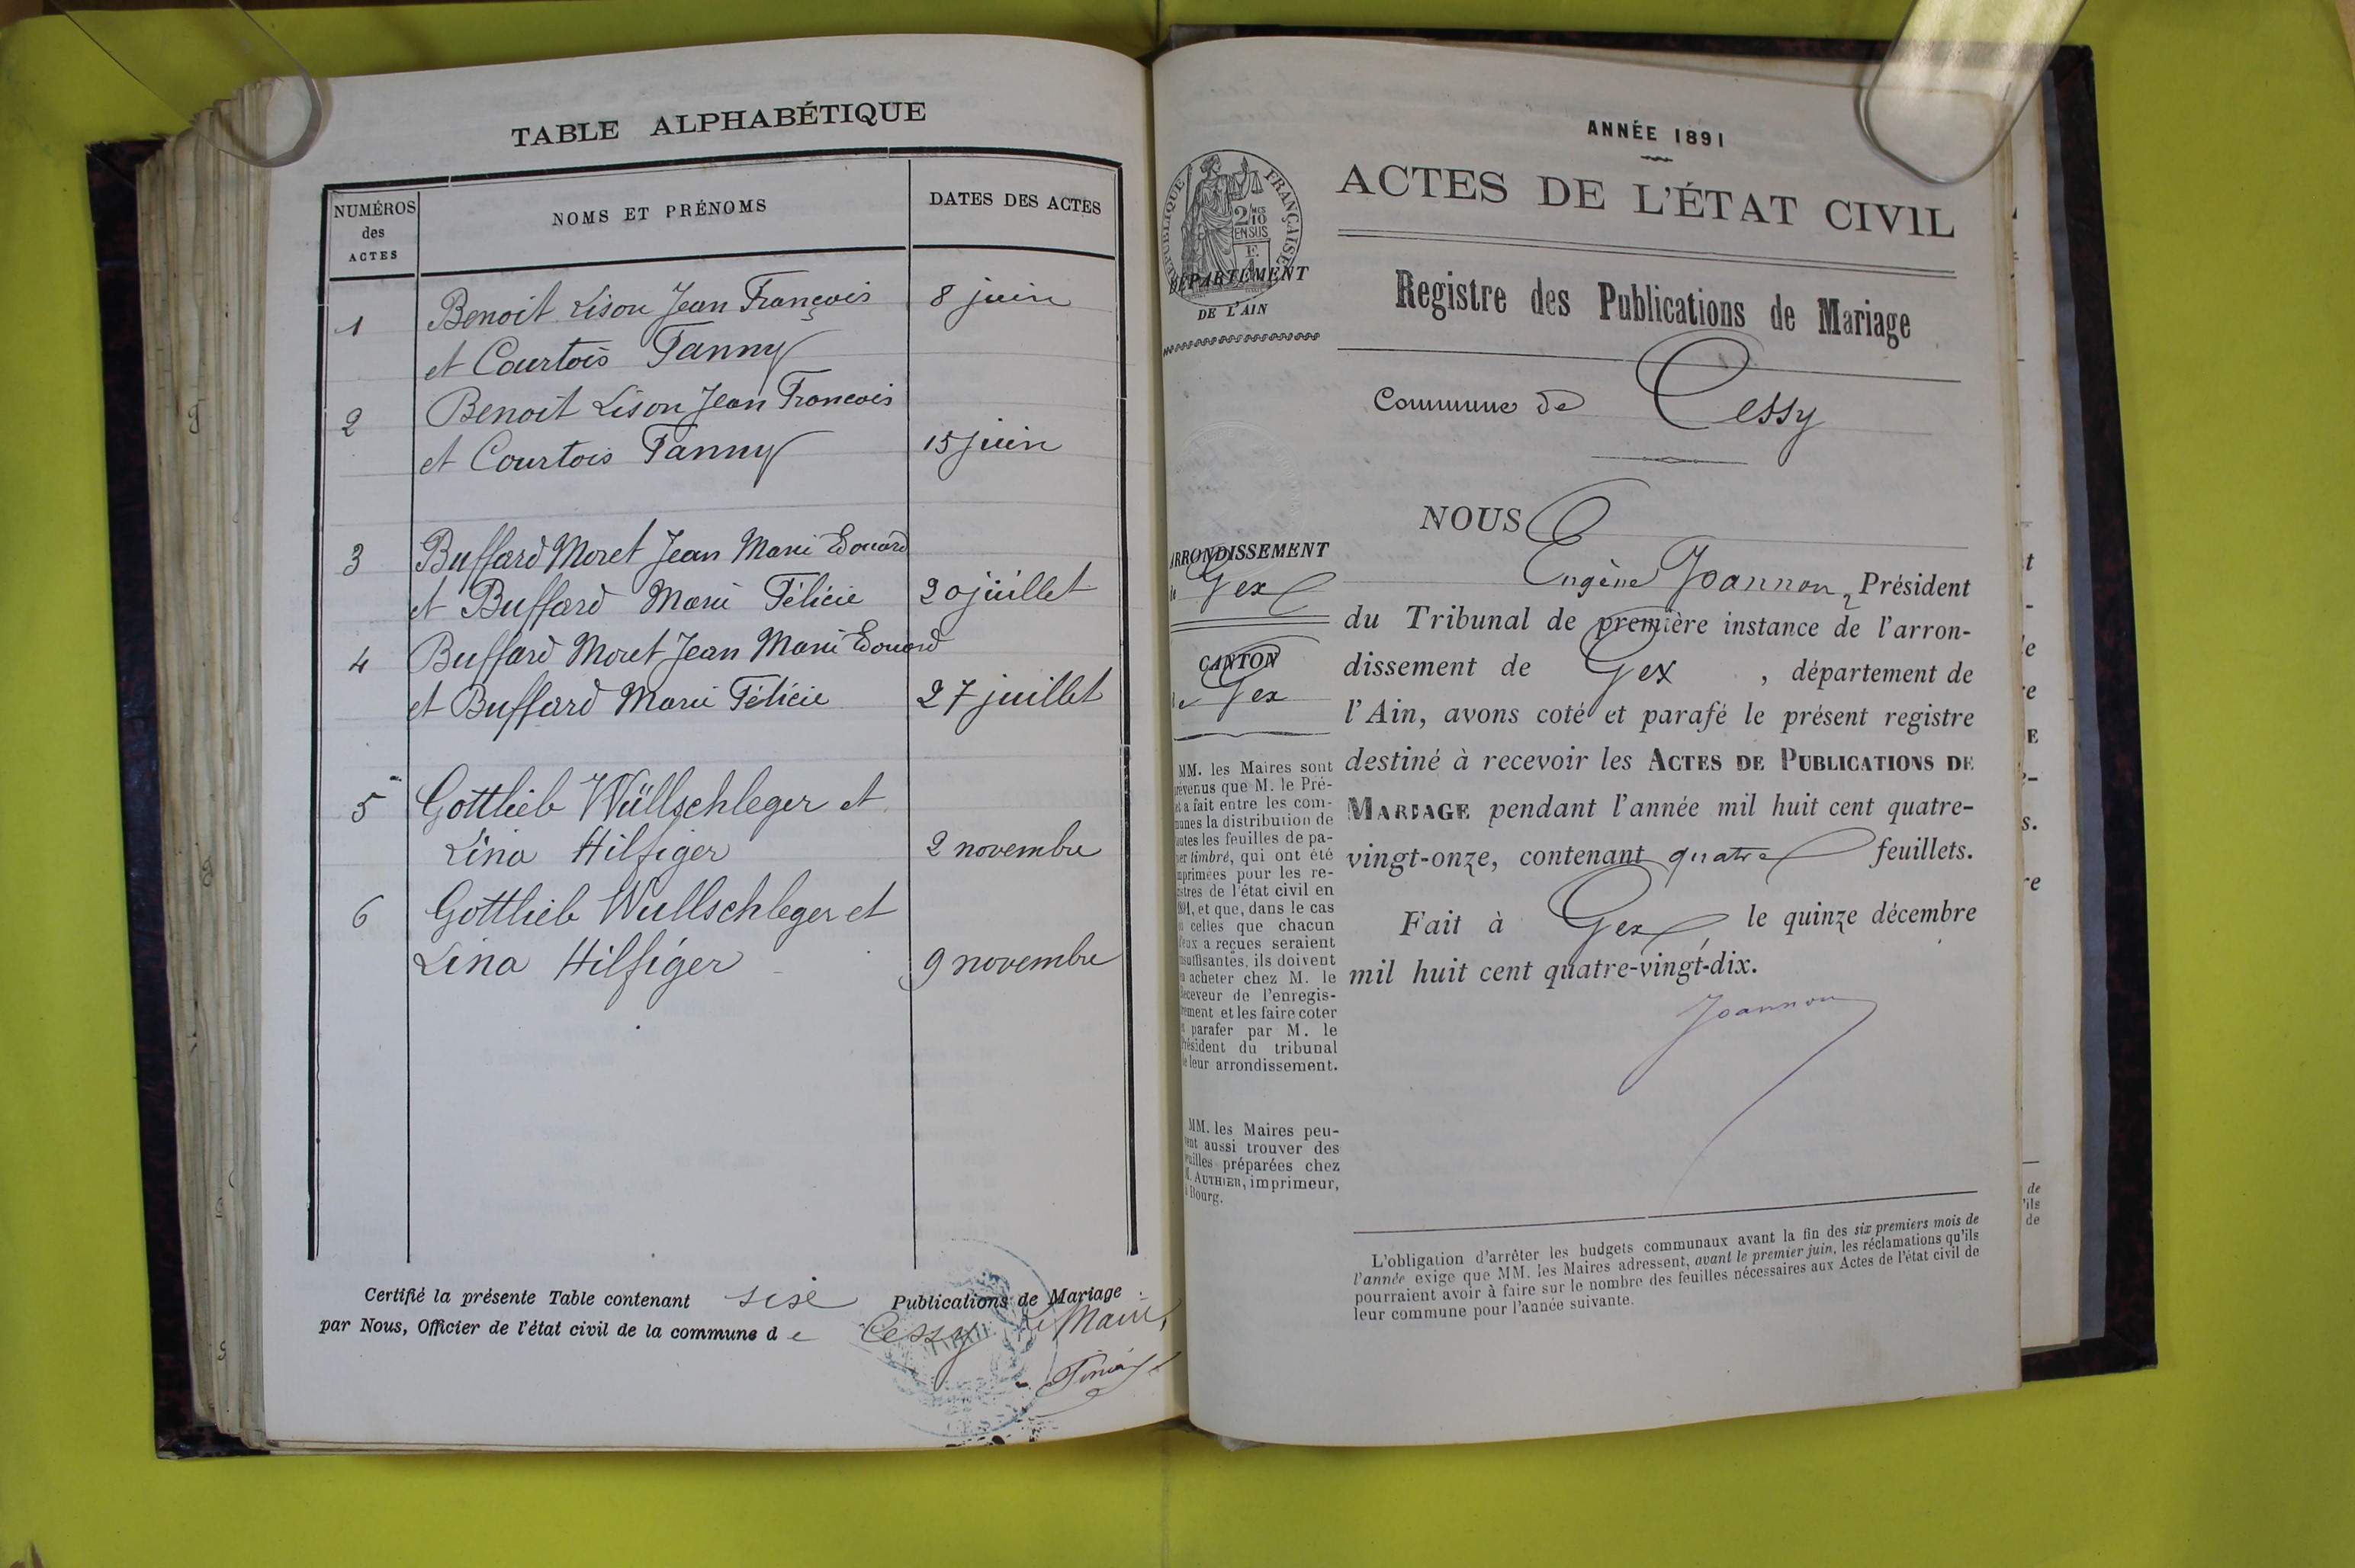 TABLE ALPHABÉTIQUE
NUMÉROS
des
ACTES
NOMS ET PRÉNOMS
DATES DES ACTES
1 Benoit Lison Jean François 8 juin
et Courtois Fanny
2 Benoit Lison Jean Francois
et Courtois Fanny 15 juin
3 Buffard Moret Jean Marie Edouard
et Buffard Marie Félicie 20 juillet
4 Buffard Moret Jean Marie Edouard
et Buffard Marie Félicie 27 juillet
5 Gottlieb Wüllschleger et
Lina Hilfiger 2 novembre
6 Gottlieb Wullschleger et
Lina Hilfiger 9 novembre
Certifié la présente Table contenant sixe Publications de Mariage
par Nous, Officier de l'état civil de la commune de Cessy Le Maire,
ANNÉE 1891
ACTES DE L'ÉTAT CIVIL
RÉPUBLIQUE FRANÇAISE
2/10MES
EN SUS
DÉPARTEMENT
DE L'AIN
Registre des Publications de Mariage
Commune de Cessy
ARRONDISSEMENT
de Gex
CANTON
de Gex
MM. les Maires sont
prévenus que M. le Pré-
fet a fait entre les com-
munes la distribution de
toutes les feuilles de pa-
pier timbré, qui ont été
imprimées pour les re-
gistres de l'état civil en
1891, et que, dans le cas
où celles que chacun
d'eux a reçues seraient
insuffisantes, ils doivent
en acheter chez M. le
Receveur de l'enregis-
trement et les faire coter
et parafer par M. le
Président du tribunal
de leur arrondissement.
MM. les Maires peu-
vent aussi trouver des
feuilles préparées chez
M. AUTHIER, imprimeur,
à Bourg.
NOUS
Eugène Joannon, Président
du Tribunal de première instance de l'arron-
dissement de Gex, département de
l'Ain, avons coté et parafé le présent registre
destiné à recevoir les ACTES DE PUBLICATIONS DE
MARIAGE pendant l'année mil huit cent quatre-
vingt-onze, contenant quatre feuillets.
Fait à Gex le quinze décembre
mil huit cent quatre-vingt-dix.
Joannon
L'obligation d'arrêter les budgets communaux avant la fin des six premiers mois de
l'année exige que MM. les Maires adressent, avant le premier juin, les réclamations qu'ils
pourraient avoir à faire sur le nombre des feuilles nécessaires aux Actes de l'état civil de
leur commune pour l'année suivante.